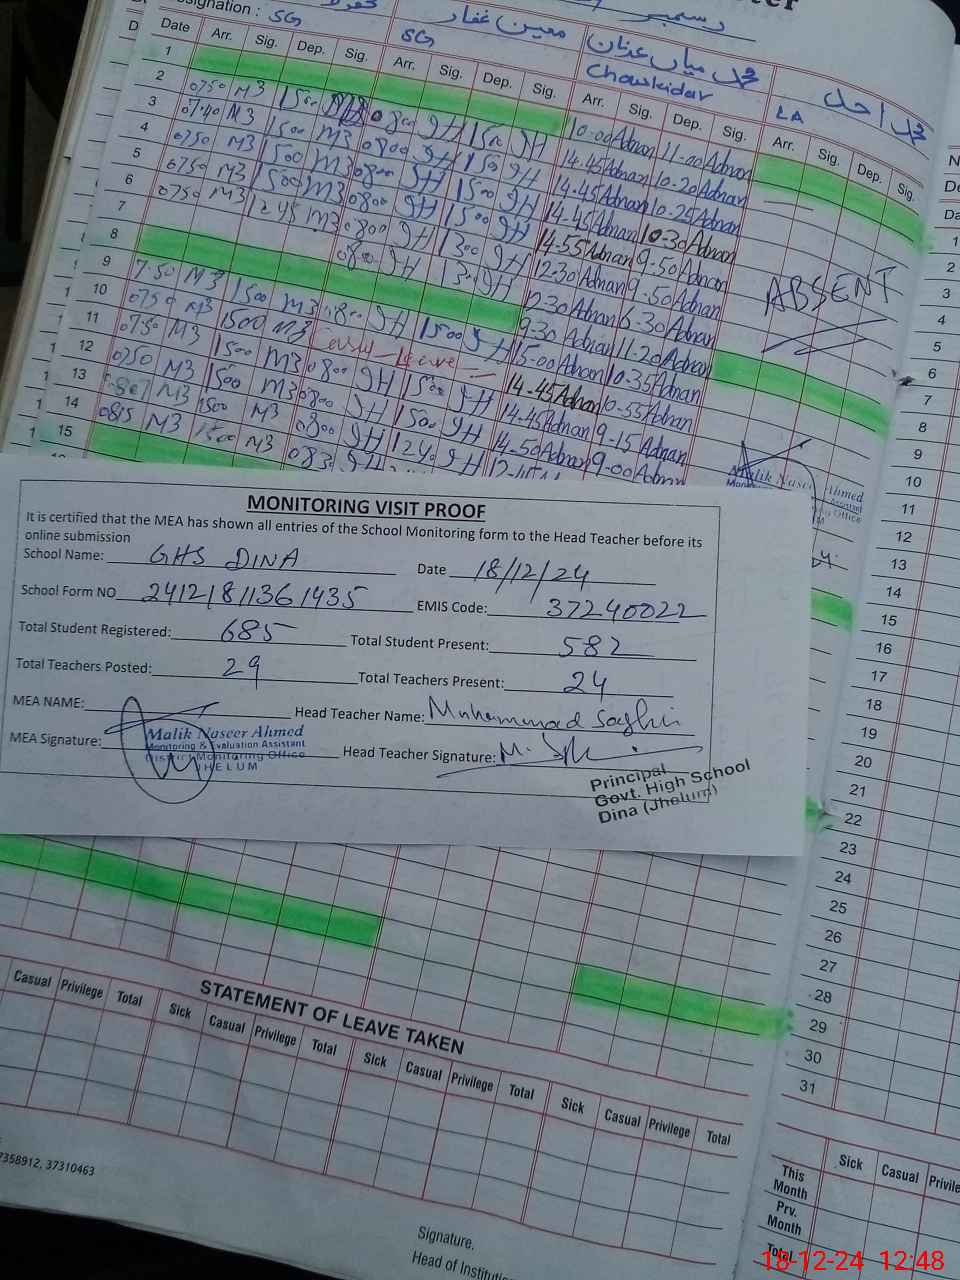 SG
SG
معین غفار
محمد میاں عدنان
Chowkidar
محمد احد
LA
Date Arr. Sig. Dep. Sig. Arr. Sig. Dep. Sig. Arr. Sig. Dep. Sig. Arr. Sig. Dep. Sig.
1
2 0750 M3 1500 0800 JH 1500 JH 10-00 Adnan 11-00 Adnan
3 0740 M3 1500 M3 0800 JH 1500 JH 14-45 Adnan 10-20 Adnan
4 0750 M3 1500 M3 0800 JH 1500 JH 14-45 Adnan 10-25 Adnan
5 0750 M3 1500 M3 0800 JH 1500 JH 14-45 Adnan 10-30 Adnan
6 0750 M3 1245 M3 0800 JH 1300 JH 14-55 Adnan 9-50 Adnan
7 0800 JH 1300 JH 12-30 Adnan 9-50 Adnan
8 6-30 Adnan
9 7:50 M3 1500 M3 0800 JH 1500 JH 9-30 Adnan 11-20 Adnan
10 0750 M3 1500 M3 Leave 15-00 Adnan 10-35 Adnan
11 0750 M3 1500 M3 0800 JH 1500 JH 14-45 Adnan 10-55 Adnan
12 0750 M3 1500 M3 0800 JH 1500 JH 14-45 Adnan 9-15 Adnan
13 M3 1500 M3 0800 JH 1240 JH 14-50 Adnan 9-00 Adnan
14 0815 M3 1500 M3 JH Adnan
15
ABSENT
Malik Naseer Ahmed
MONITORING VISIT PROOF
It is certified that the MEA has shown all entries of the School Monitoring form to the Head Teacher before its
online submission
School Name: GHS DINA Date 18/12/24
School Form NO 24121811361435 EMIS Code: 37240022
Total Student Registered: 685 Total Student Present: 582
Total Teachers Posted: 29 Total Teachers Present: 24
MEA NAME: Head Teacher Name: Muhammad Saghir
MEA Signature: Head Teacher Signature:
Malik Naseer Ahmed
Monitoring & Evaluation Assistant
District Monitoring Office
JHELUM
Principal
Govt. High School
Dina (Jhelum)
STATEMENT OF LEAVE TAKEN
Casual Privilege Total Sick Casual Privilege Total Sick Casual Privilege Total Sick Casual Privilege Total
7358912, 37310463
Signature.
Head of Institution
1
2
3
4
5
6
7
8
9
10
11
12
13
14
15
16
17
18
19
20
21
22
23
24
25
26
27
28
29
30
31
Sick Casual
This Month
Prv. Month
Total
18-12-24 12:48